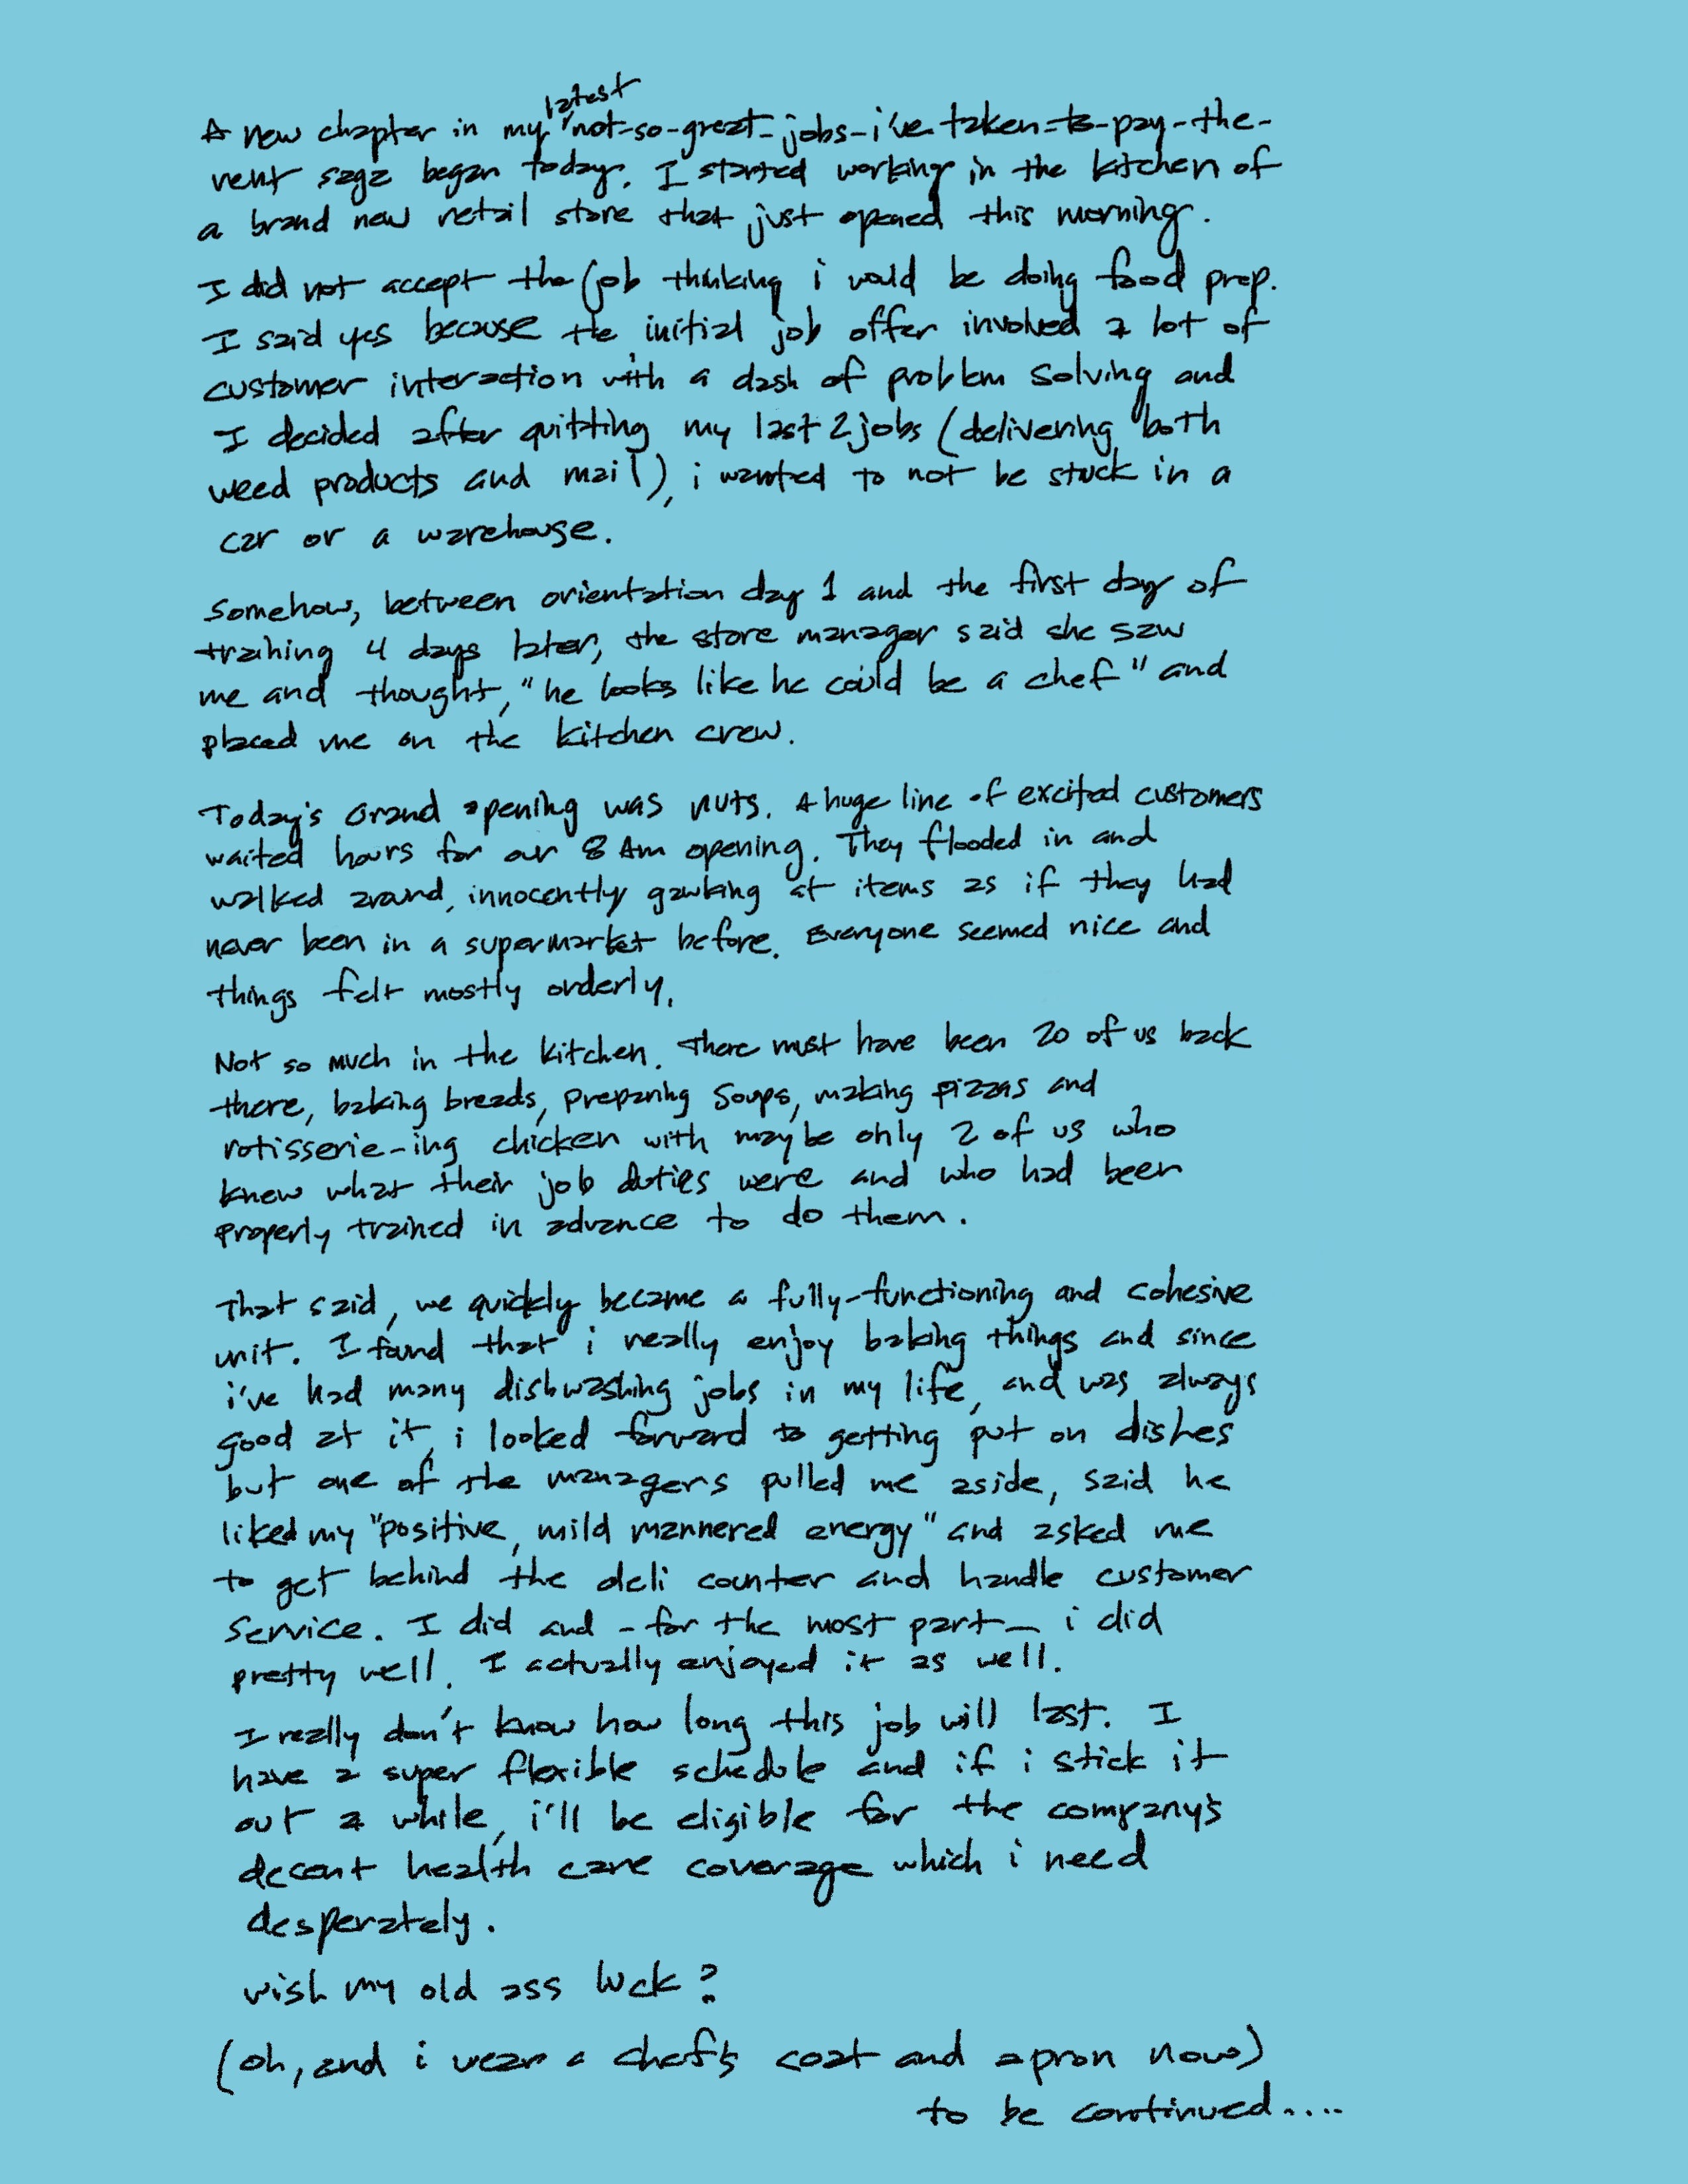 A new chapter in my latest not-so-great-jobs-i've-taken-to-pay-the-
rent saga began today. I started working in the kitchen of
a brand new retail store that just opened this morning.
I did not accept the job thinking i would be doing food prep.
I said yes because the initial job offer involved a lot of
customer interaction with a dash of problem solving and
I decided after quitting my last 2 jobs (delivering both
weed products and mail), i wanted to not be stuck in a
car or a warehouse.
Somehow, between orientation day 1 and the first day of
training 4 days later, the store manager said she saw
me and thought, "he looks like he could be a chef" and
placed me on the kitchen crew.
Today's Grand opening was nuts. A huge line of excited customers
waited hours for our 8 Am opening. They flooded in and
walked around, innocently gawking at items as if they had
never been in a supermarket before. Everyone seemed nice and
things felt mostly orderly.
Not so much in the kitchen. There must have been 20 of us back
there, baking breads, preparing soups, making pizzas and
rotisserie-ing chicken with maybe only 2 of us who
knew what their job duties were and who had been
properly trained in advance to do them.
That said, we quickly became a fully-functioning and cohesive
unit. I found that i really enjoy baking things and since
i've had many dishwashing jobs in my life, and was always
good at it, i looked forward to getting put on dishes
but one of the managers pulled me aside, said he
liked my "positive, mild mannered energy" and asked me
to get behind the deli counter and handle customer
service. I did and - for the most part - i did
pretty well. I actually enjoyed it as well.
I really don't know how long this job will last. I
have a super flexible schedule and if i stick it
out a while, i'll be eligible for the company's
decent health care coverage which i need
desperately.
wish my old ass luck?
(oh, and i wear a chef's coat and apron now)
to be continued....